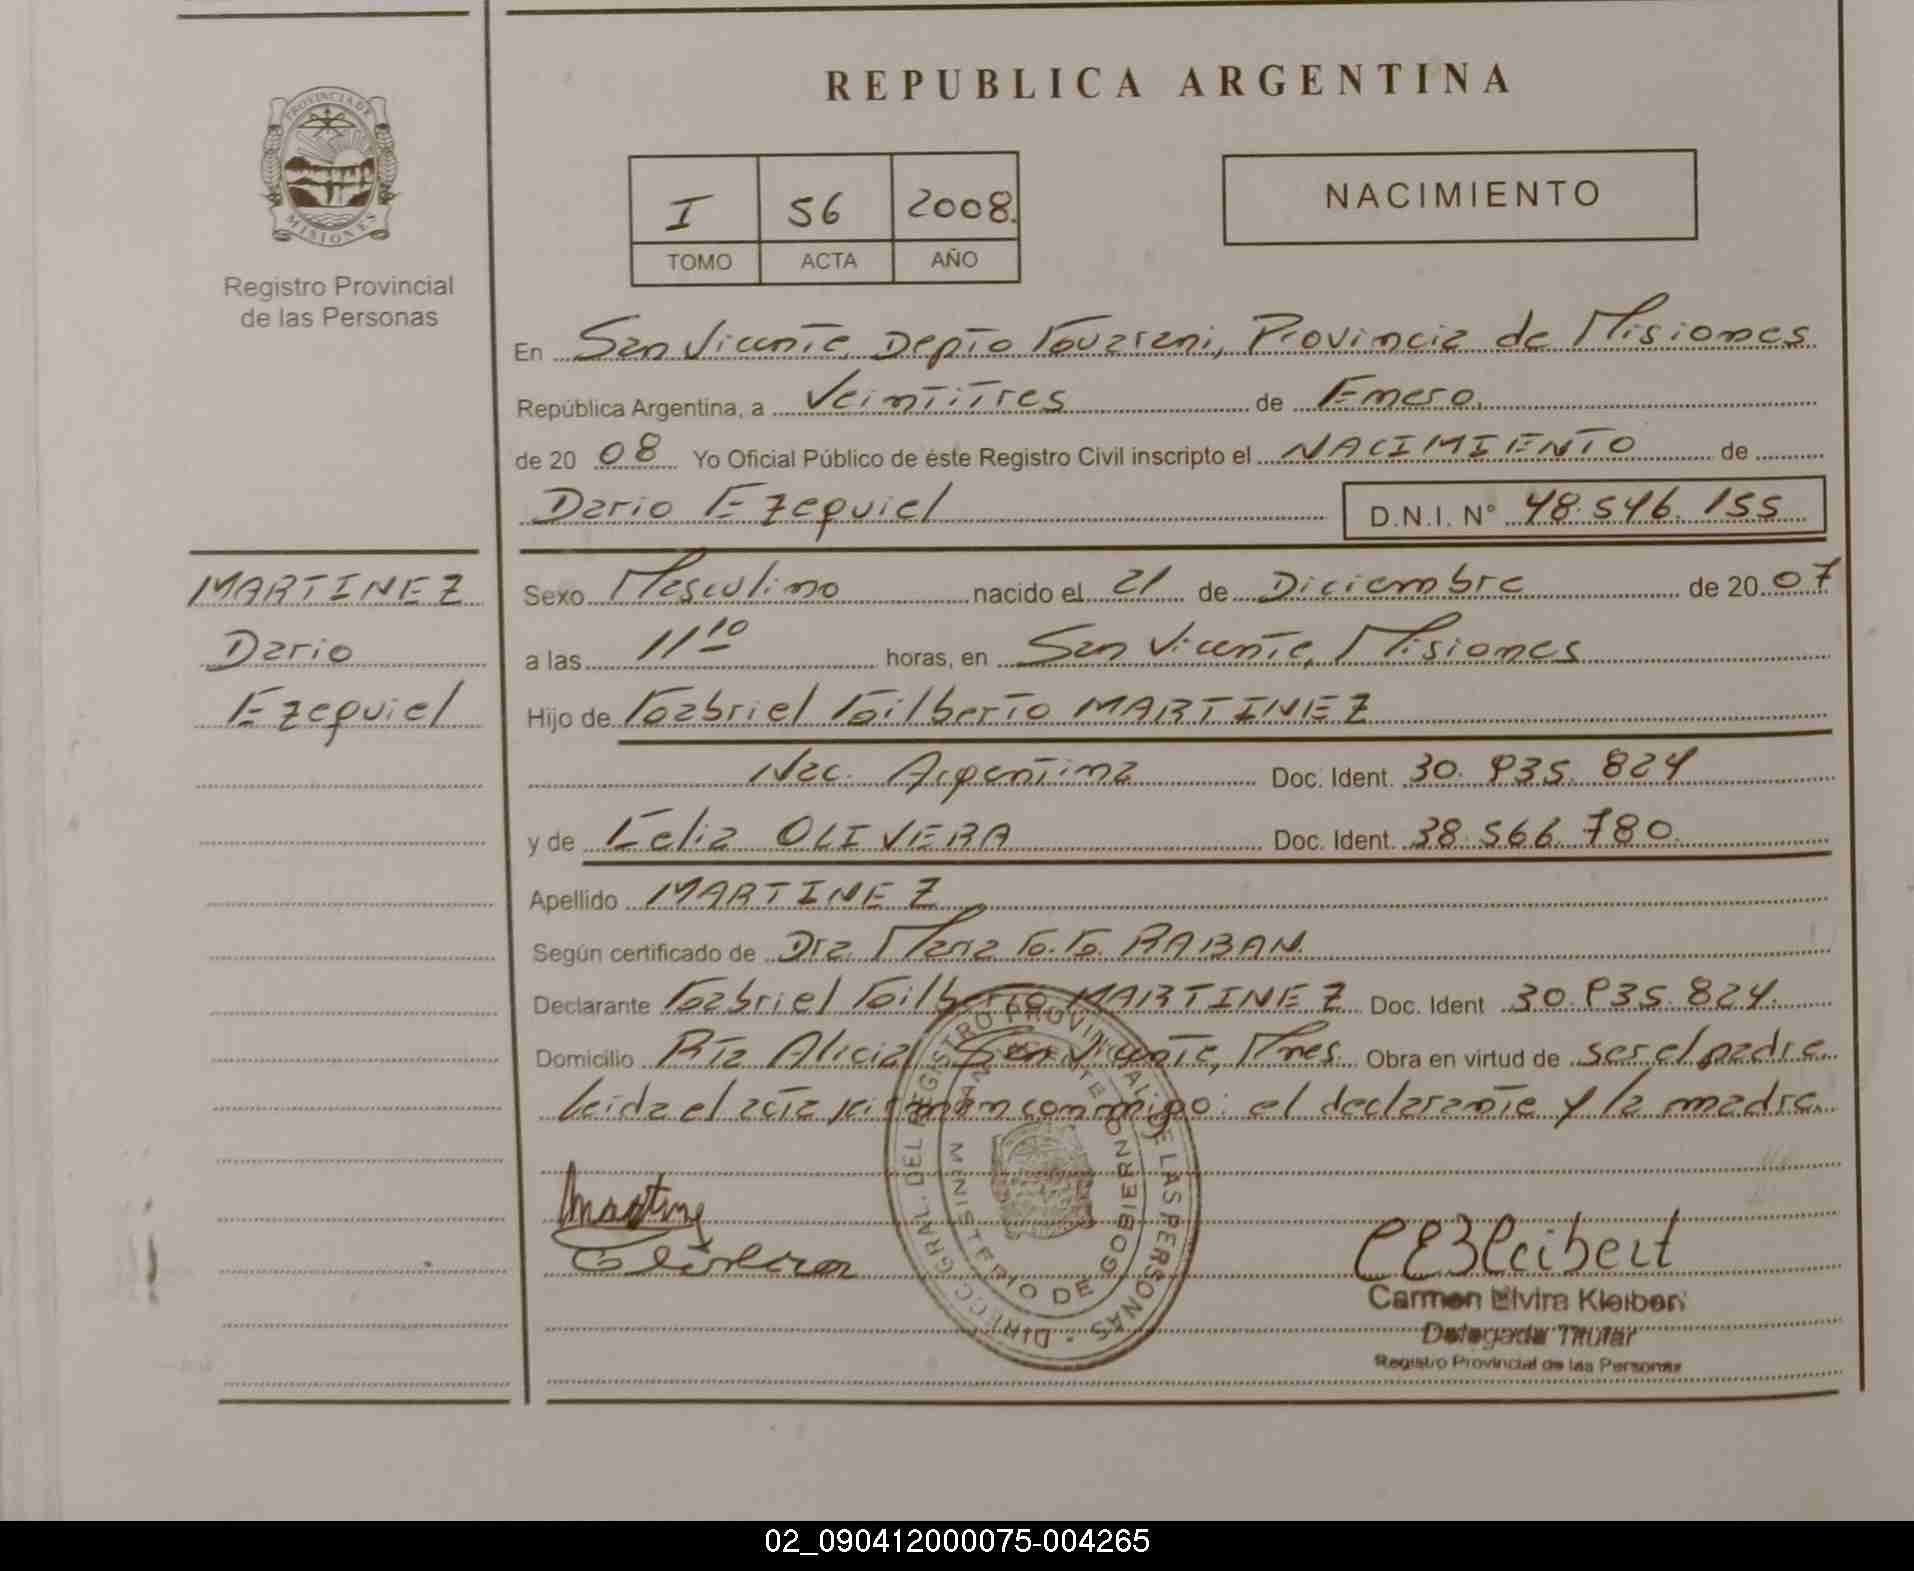 REPUBLICA ARGENTINA
PROVINCIA DE
MISIONES
Registro Provincial
de las Personas
I 56 2008.
TOMO ACTA AÑO
NACIMIENTO
En San Vicente, Depto Guarani, Provincia de Misiones
República Argentina, a Veintitres de Enero.
de 20 08 Yo Oficial Público de éste Registro Civil inscripto el NACIMIENTO de
Dario Ezequiel D.N.I. N° 48.546.155
MARTINEZ
Dario
Ezequiel
Sexo Masculino nacido el 21 de Diciembre de 20 07
a las 11 10 horas, en San Vicente, Misiones
Hijo de Gabriel Gilberto MARTINEZ
Nac. Argentina Doc. Ident. 30.935.824
y de Celia OLIVERA Doc. Ident. 38.566.780.
Apellido MARTINEZ
Según certificado de Dra. Maria G. G. RABAN
Declarante Gabriel Gilberto MARTINEZ Doc. Ident 30.935.824.
Domicilio Pta Alicia, San Vicente, Mnes. Obra en virtud de ser el padre
leida el acta firman conmigo: el declarante y la madre.
DIRECC. GRAL. DEL REGISTRO PROVINCIAL DE LAS PERSONAS
MINISTERIO DE GOBIERNO
SAN VICENTE
Martinez
Olivera
CEKleibert
Carmen Elvira Kleibert
Delegada Titular
Registro Provincial de las Personas
02_090412000075-004265